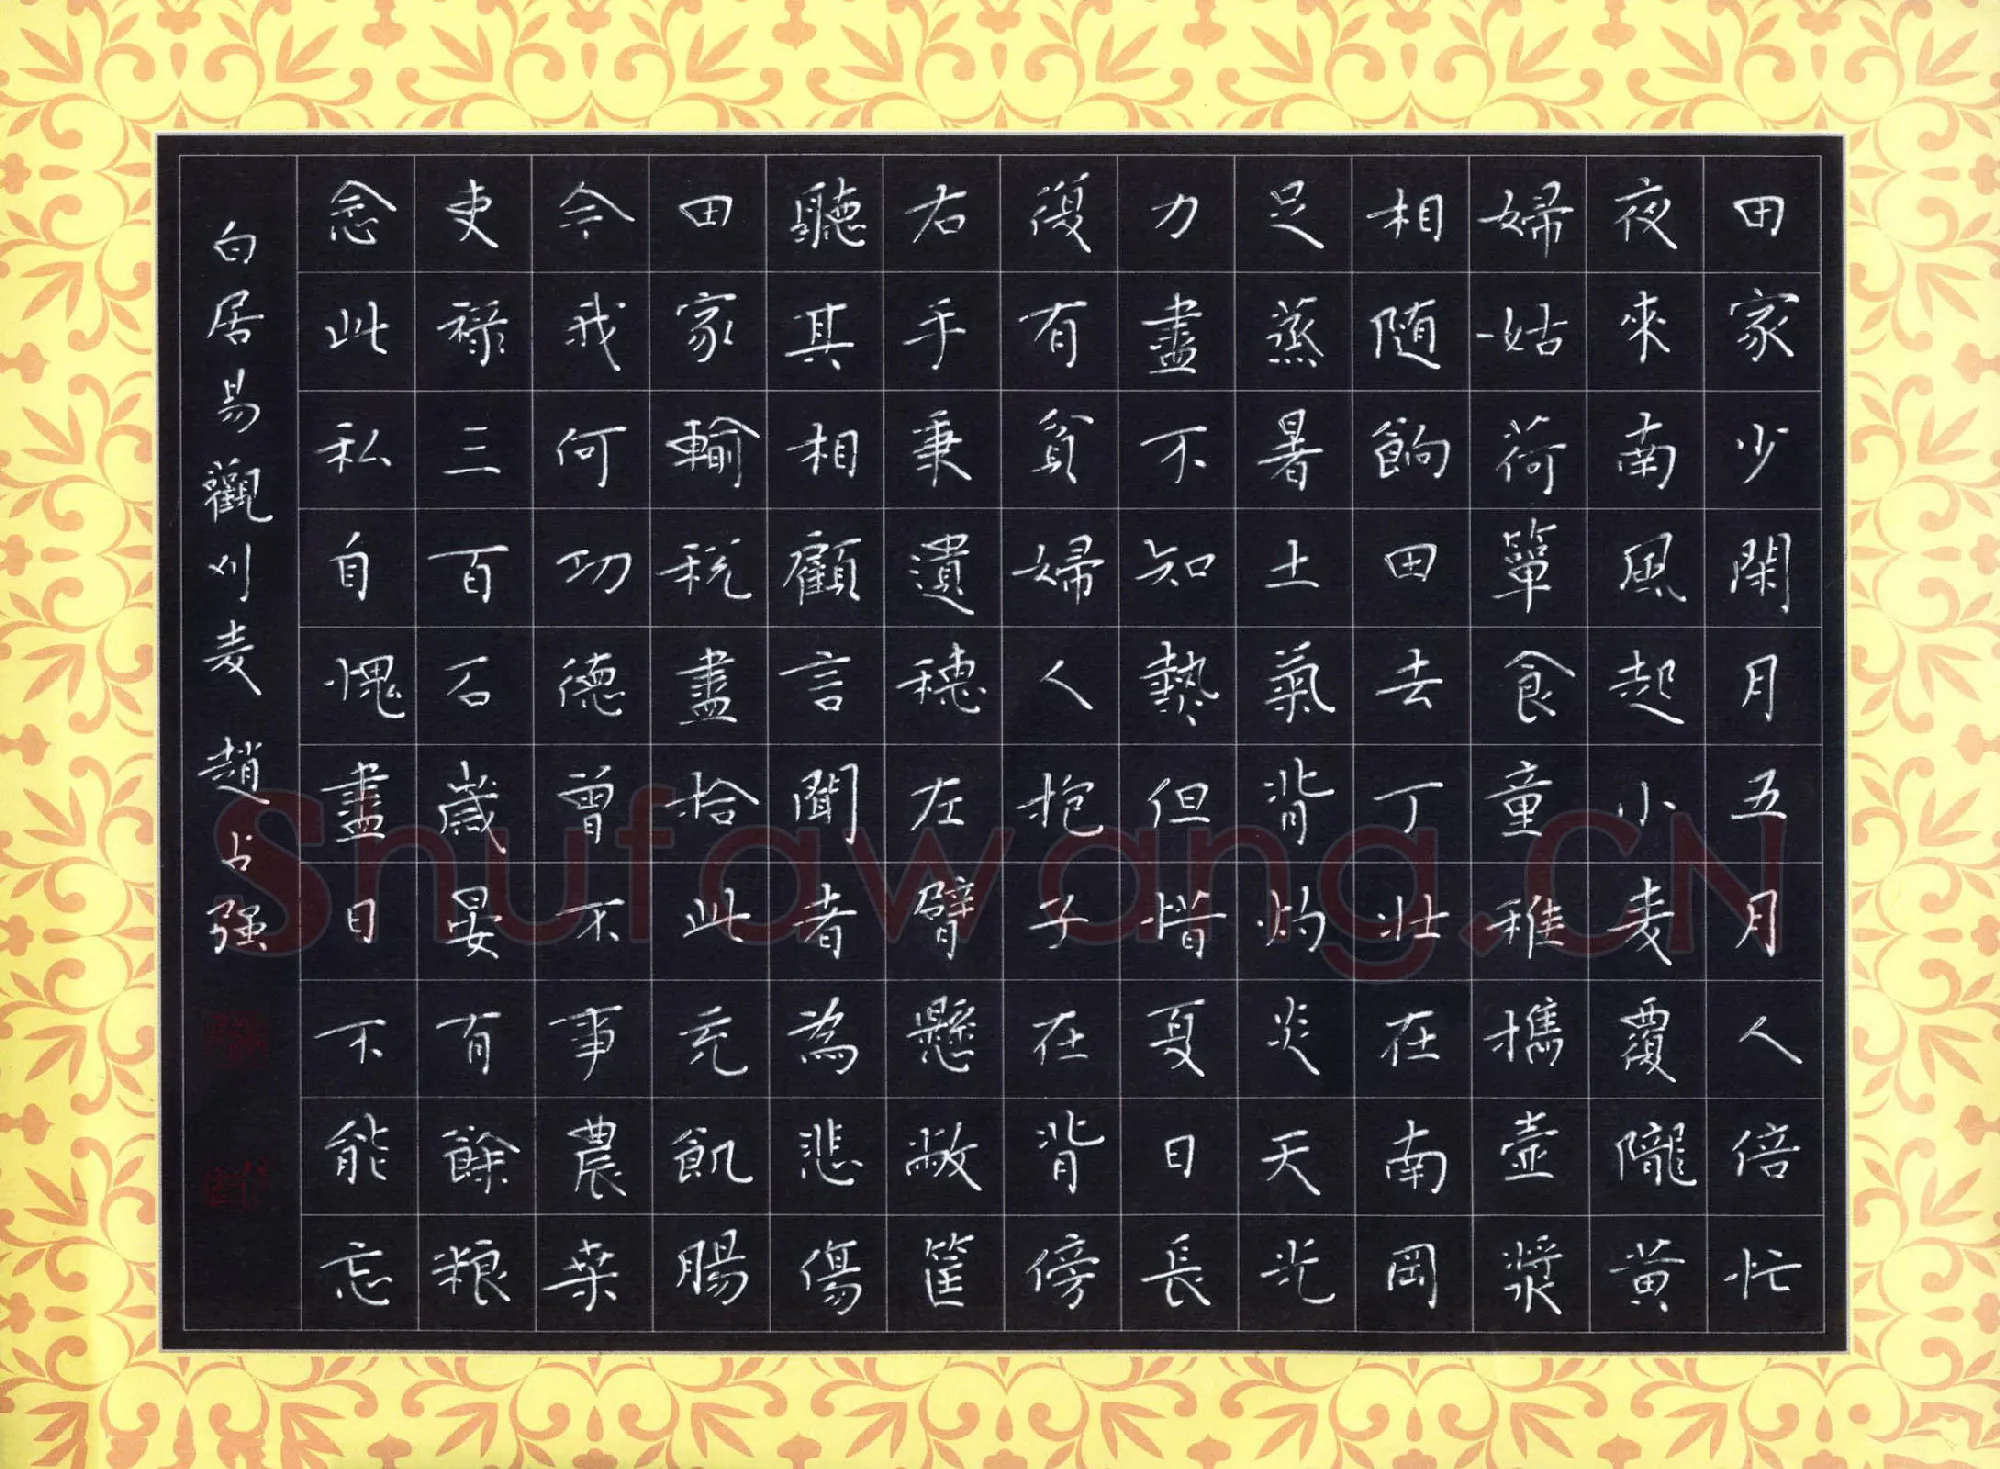 田家少閑月五月人倍忙
夜來南風起小麦覆隴黄
婦姑荷簞食童稚攜壺漿
相随餉田去丁壮在南岡
足蒸暑土氣背灼炎天光
力盡不知熱但惜夏日長
復有貧婦人抱子在背傍
右手秉遺穗左臂懸敝筐
聽其相顧言聞者為悲傷
田家輸税盡拾此充飢腸
今我何功德曾不事農桒
吏禄三百石歲晏有餘粮
念此私自愧盡日不能忘
白居易觀刈麦 趙占强
Shufawang.CN